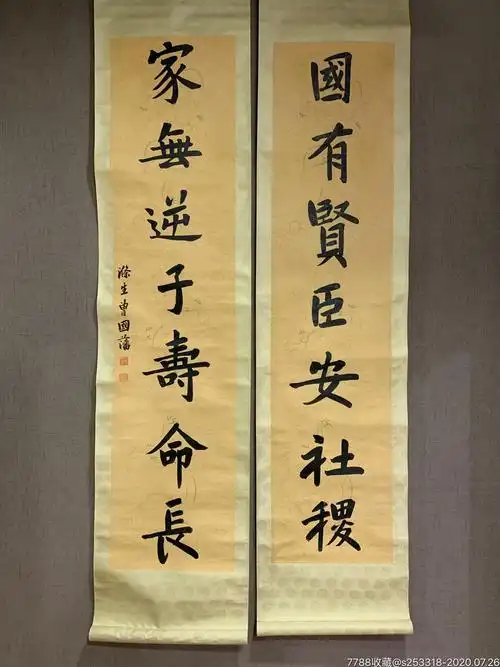 國有賢臣安社稷
家無逆子壽命長
滌生曾國藩
7788收藏@s253318-2020.07.26